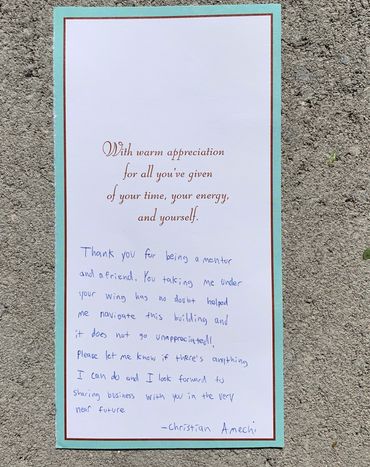 With warm appreciation
for all you've given
of your time, your energy,
and yourself.
Thank you for being a mentor
and a friend. You taking me under
your wing has no doubt helped
me navigate this building and
it does not go unappreciated!
Please let me know if there's anything
I can do and I look forward to
sharing business with you in the very
near future
-Christian Amechi